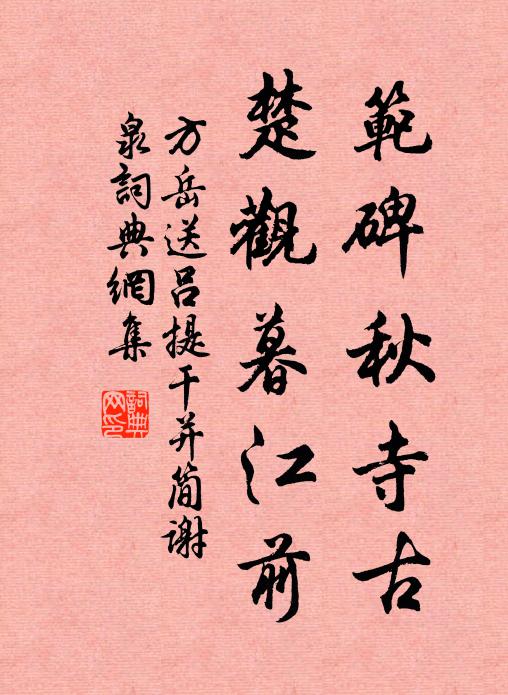 範碑秋寺古
楚觀暮江前
方岳送吕提干并简谢
泉詞典網集
詞典网印